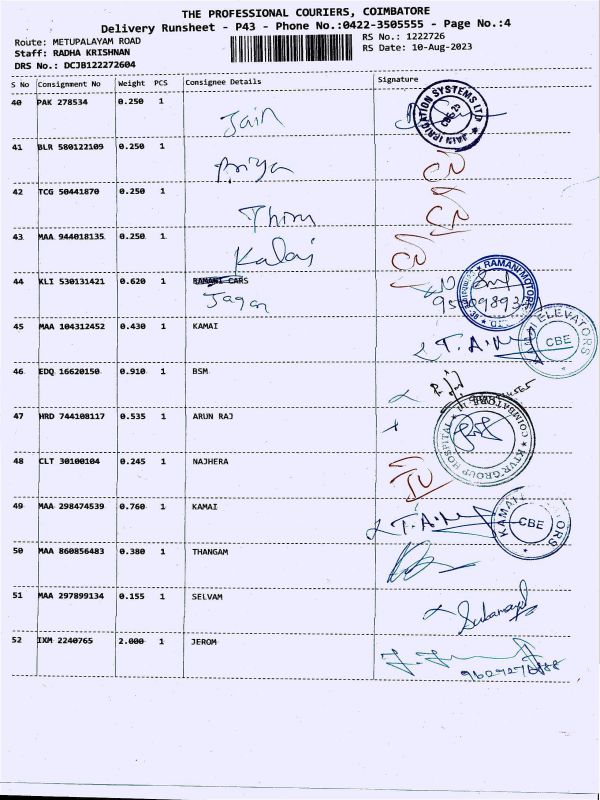 THE PROFESSIONAL COURIERS, COIMBATORE
Delivery Runsheet - P43 - Phone No.:0422-3505555 - Page No.:4
Route: METUPALAYAM ROAD RS No.: 1222726
Staff: RADHA KRISHNAN RS Date: 10-Aug-2023
DRS No.: DCJB122272604
S No Consignment No Weight PCS Consignee Details Signature
40 PAK 278534 0.250 1
Jain JAIN IRRIGATION SYSTEMS LTD
41 BLR 580122109 0.250 1
Priya CN
42 TCG 50441870 0.250 1
Thiru CN
43 MAA 944018135 0.250 1
Kalai CN
44 KLI 530131421 0.620 1 RAMANI CARS RAMANI MOTORS
Jagan
45 MAA 104312452 0.430 1 KAMAI
T.A.M KAMAI ELEVATORS CBE
46 EDQ 16620150 0.910 1 BSM
47 HRD 744108117 0.535 1 ARUN RAJ
KTVR GROUP HOSPITAL COIMBATORE
48 CLT 30100104 0.245 1 NAJHERA
49 MAA 298474539 0.760 1 KAMAI
T.A.M KAMAI ELEVATORS CBE
50 MAA 860856483 0.380 1 THANGAM
51 MAA 297899134 0.155 1 SELVAM
52 IXM 2240765 2.000 1 JEROM